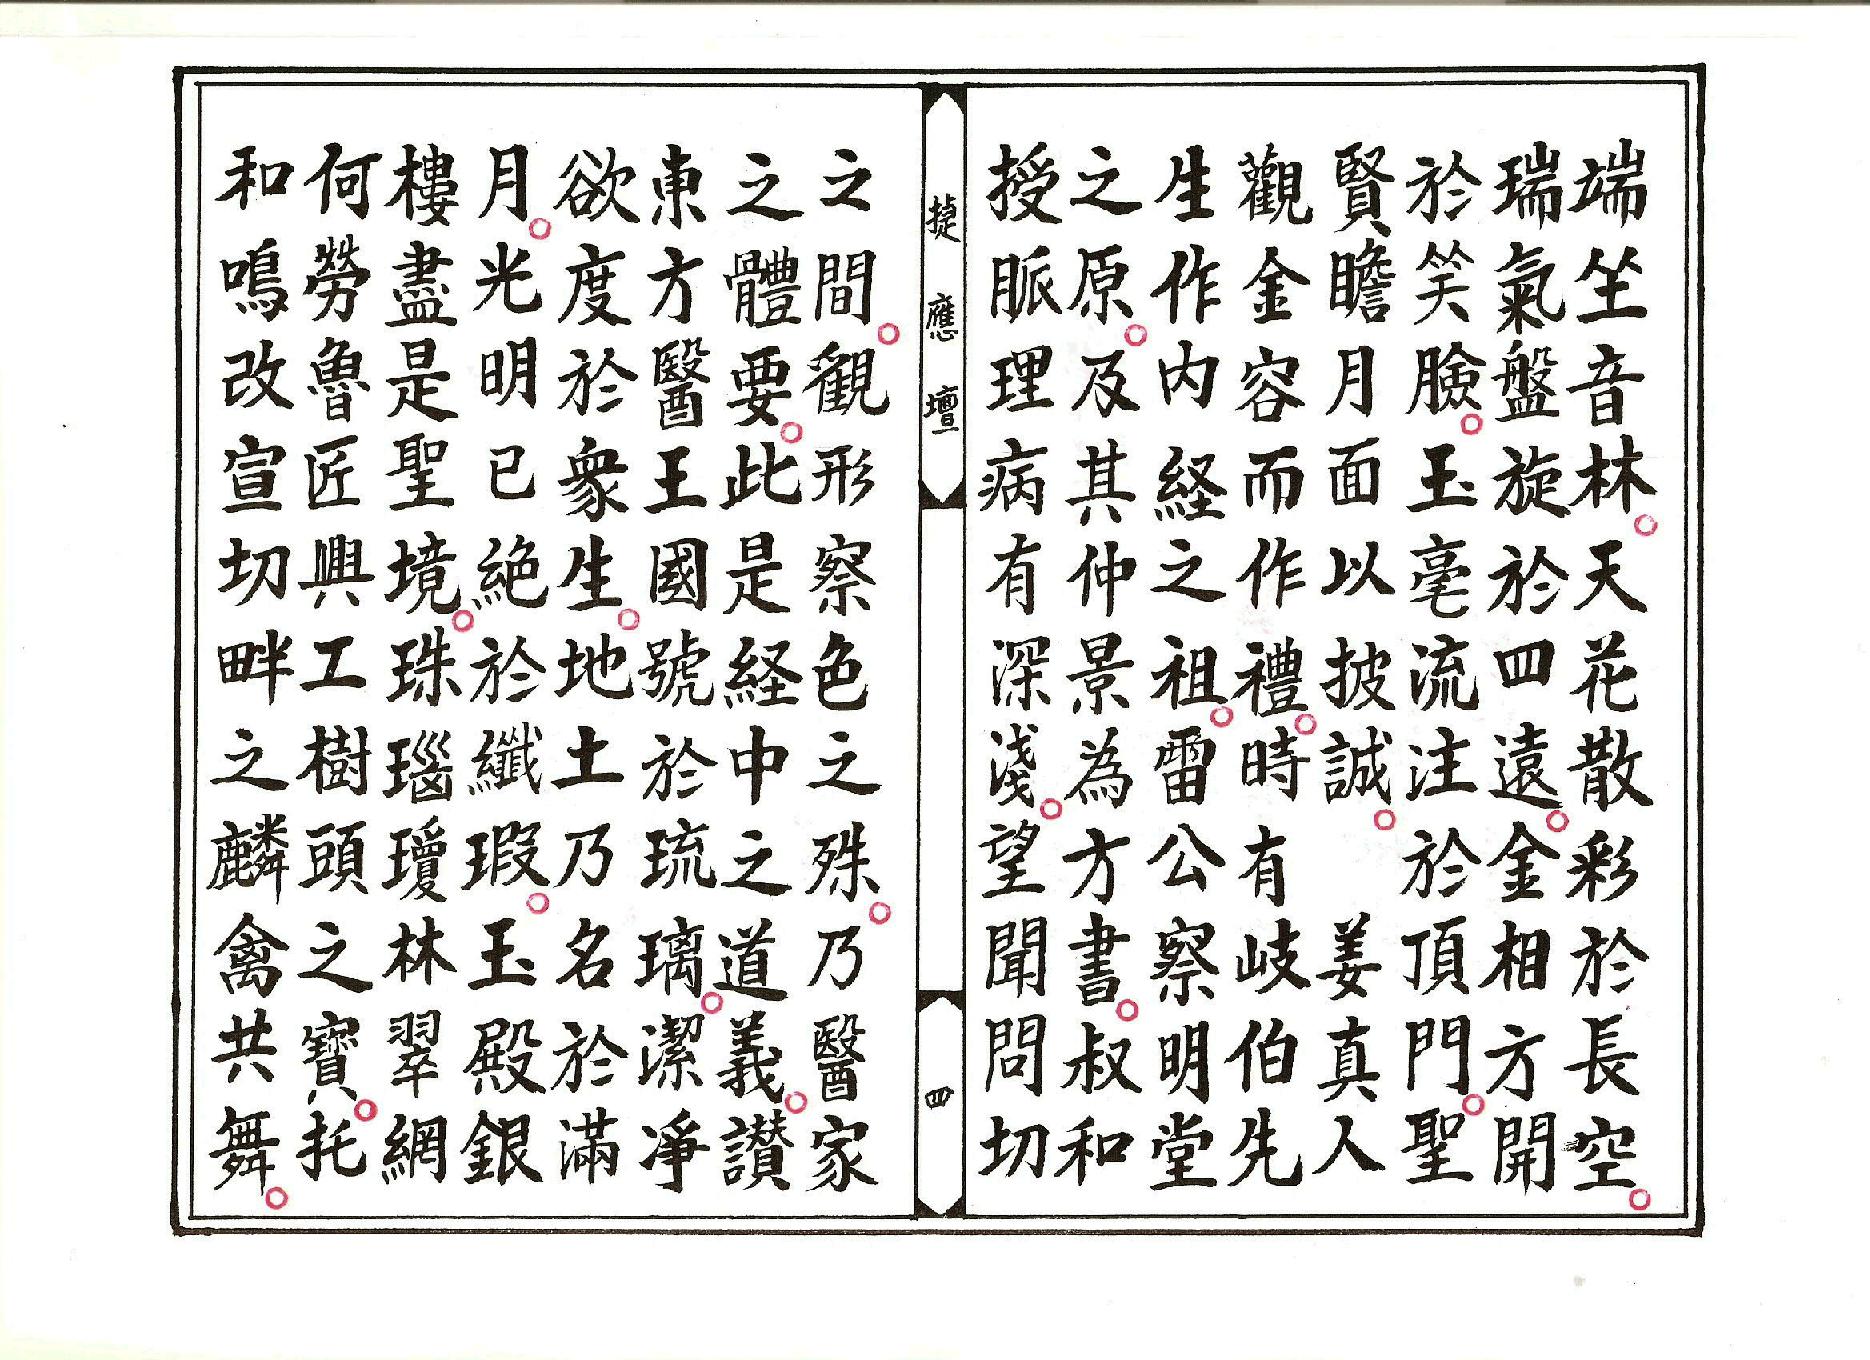 端坐音林。天花散彩於長空。
瑞氣盤旋於四遠。金相方開
於笑臉。玉毫流注於頂門。聖
賢瞻月面以披誠。　姜真人
觀金容而作禮。時有岐伯先
生作内経之祖。雷公察明堂
之原。及其仲景為方書。叔和
授脈理病有深淺。望聞問切
捷應壇
四
之間。觀形察色之殊。乃醫家
之體要。此是経中之道義。讃
東方醫王國號於琉璃。潔凈
欲度於衆生。地土乃名於滿
月。光明已絶於纖瑕。玉殿銀
樓盡是聖境。珠瑙瓊林翠網
何勞魯匠興工樹頭之寶。托
和鳴改宣切畔之麟禽共舞。